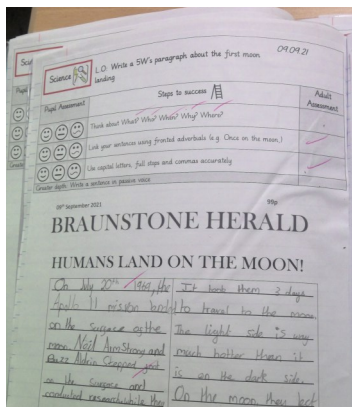 Sci
Science
L.O. Write a 5W's paragraph about the first moon
landing
09.09.21
Pupil
Pupil Assessment
Steps to success
Adult
Assessment
Think about What? Who? When? Why? Where?
Link your sentences using fronted adverbials (e.g. Once on the moon,)
Use capital letters, full stops and commas accurately
Greater
Greater depth: Write a sentence in passive voice
09th September 2021
99p
BRAUNSTONE HERALD
HUMANS LAND ON THE MOON!
On July 20th 1969, the
Apollo 11 mission
on the surface of the
moon. Neil Armstrong and
Buzz Aldrin
on the surface and
conducted research while they
It took them 3 days
to travel to the moon
The light side is way
much hotter than it
is on the dark side.
On the moon they left